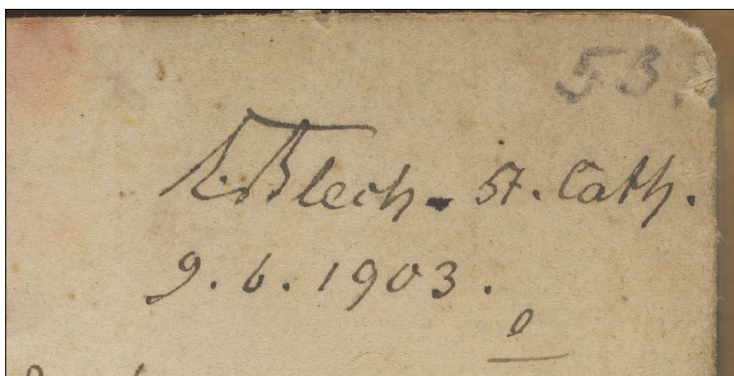 53.
Blech - St. Cath.
9. 6. 1903.